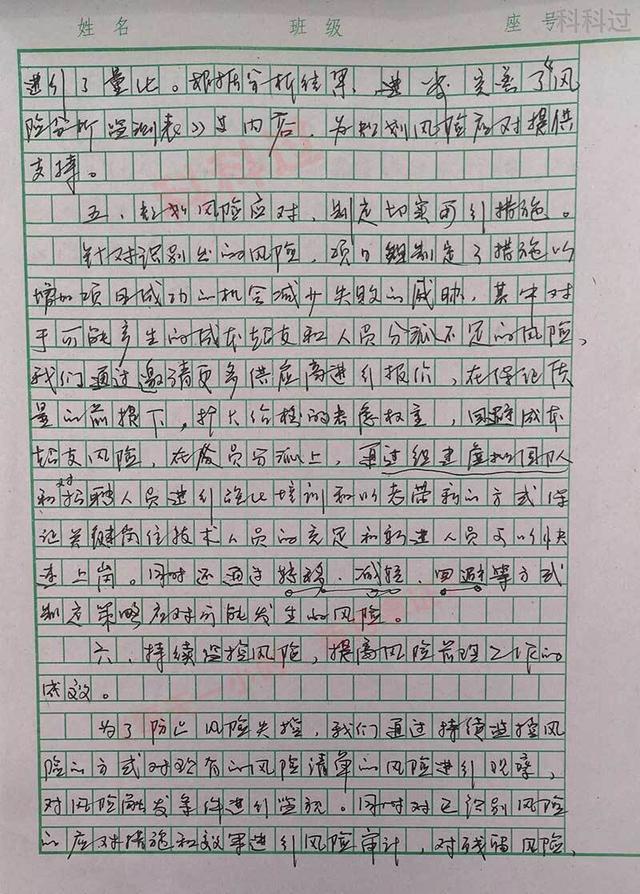 姓名 班级 座号 科科过
进行了量化。根据分析结果,进一步完善了《风
险分析监测表》的内容,为规划风险应对提供
支持。
五、规划风险应对,制定切实可行措施。
针对识别出的风险,项目组制定了措施以
增加项目成功的机会减少失败的威胁,其中对
于可能产生的成本超支和人员分派不足的风险,
我们通过邀请更多供应商进行报价,在保证质
量的前提下,扩大价格的考虑权重,回避成本
超支风险,在人员分派上,通过组建虚拟团队
和对招聘人员进行强化培训和以老带新的方式保
证关键岗位技术人员的充足和新进人员可以快
速上岗。同时还通过转移、减轻、回避等方式
制定策略应对可能发生的风险。
六、持续监控风险,提高风险管理工作的
成效。
为了防止风险失控,我们通过持续监控风
险的方式对现有的风险清单的风险进行观察,
对风险触发条件进行监视。同时对已识别风险
的应对措施和效果进行风险审计,对残留风险,